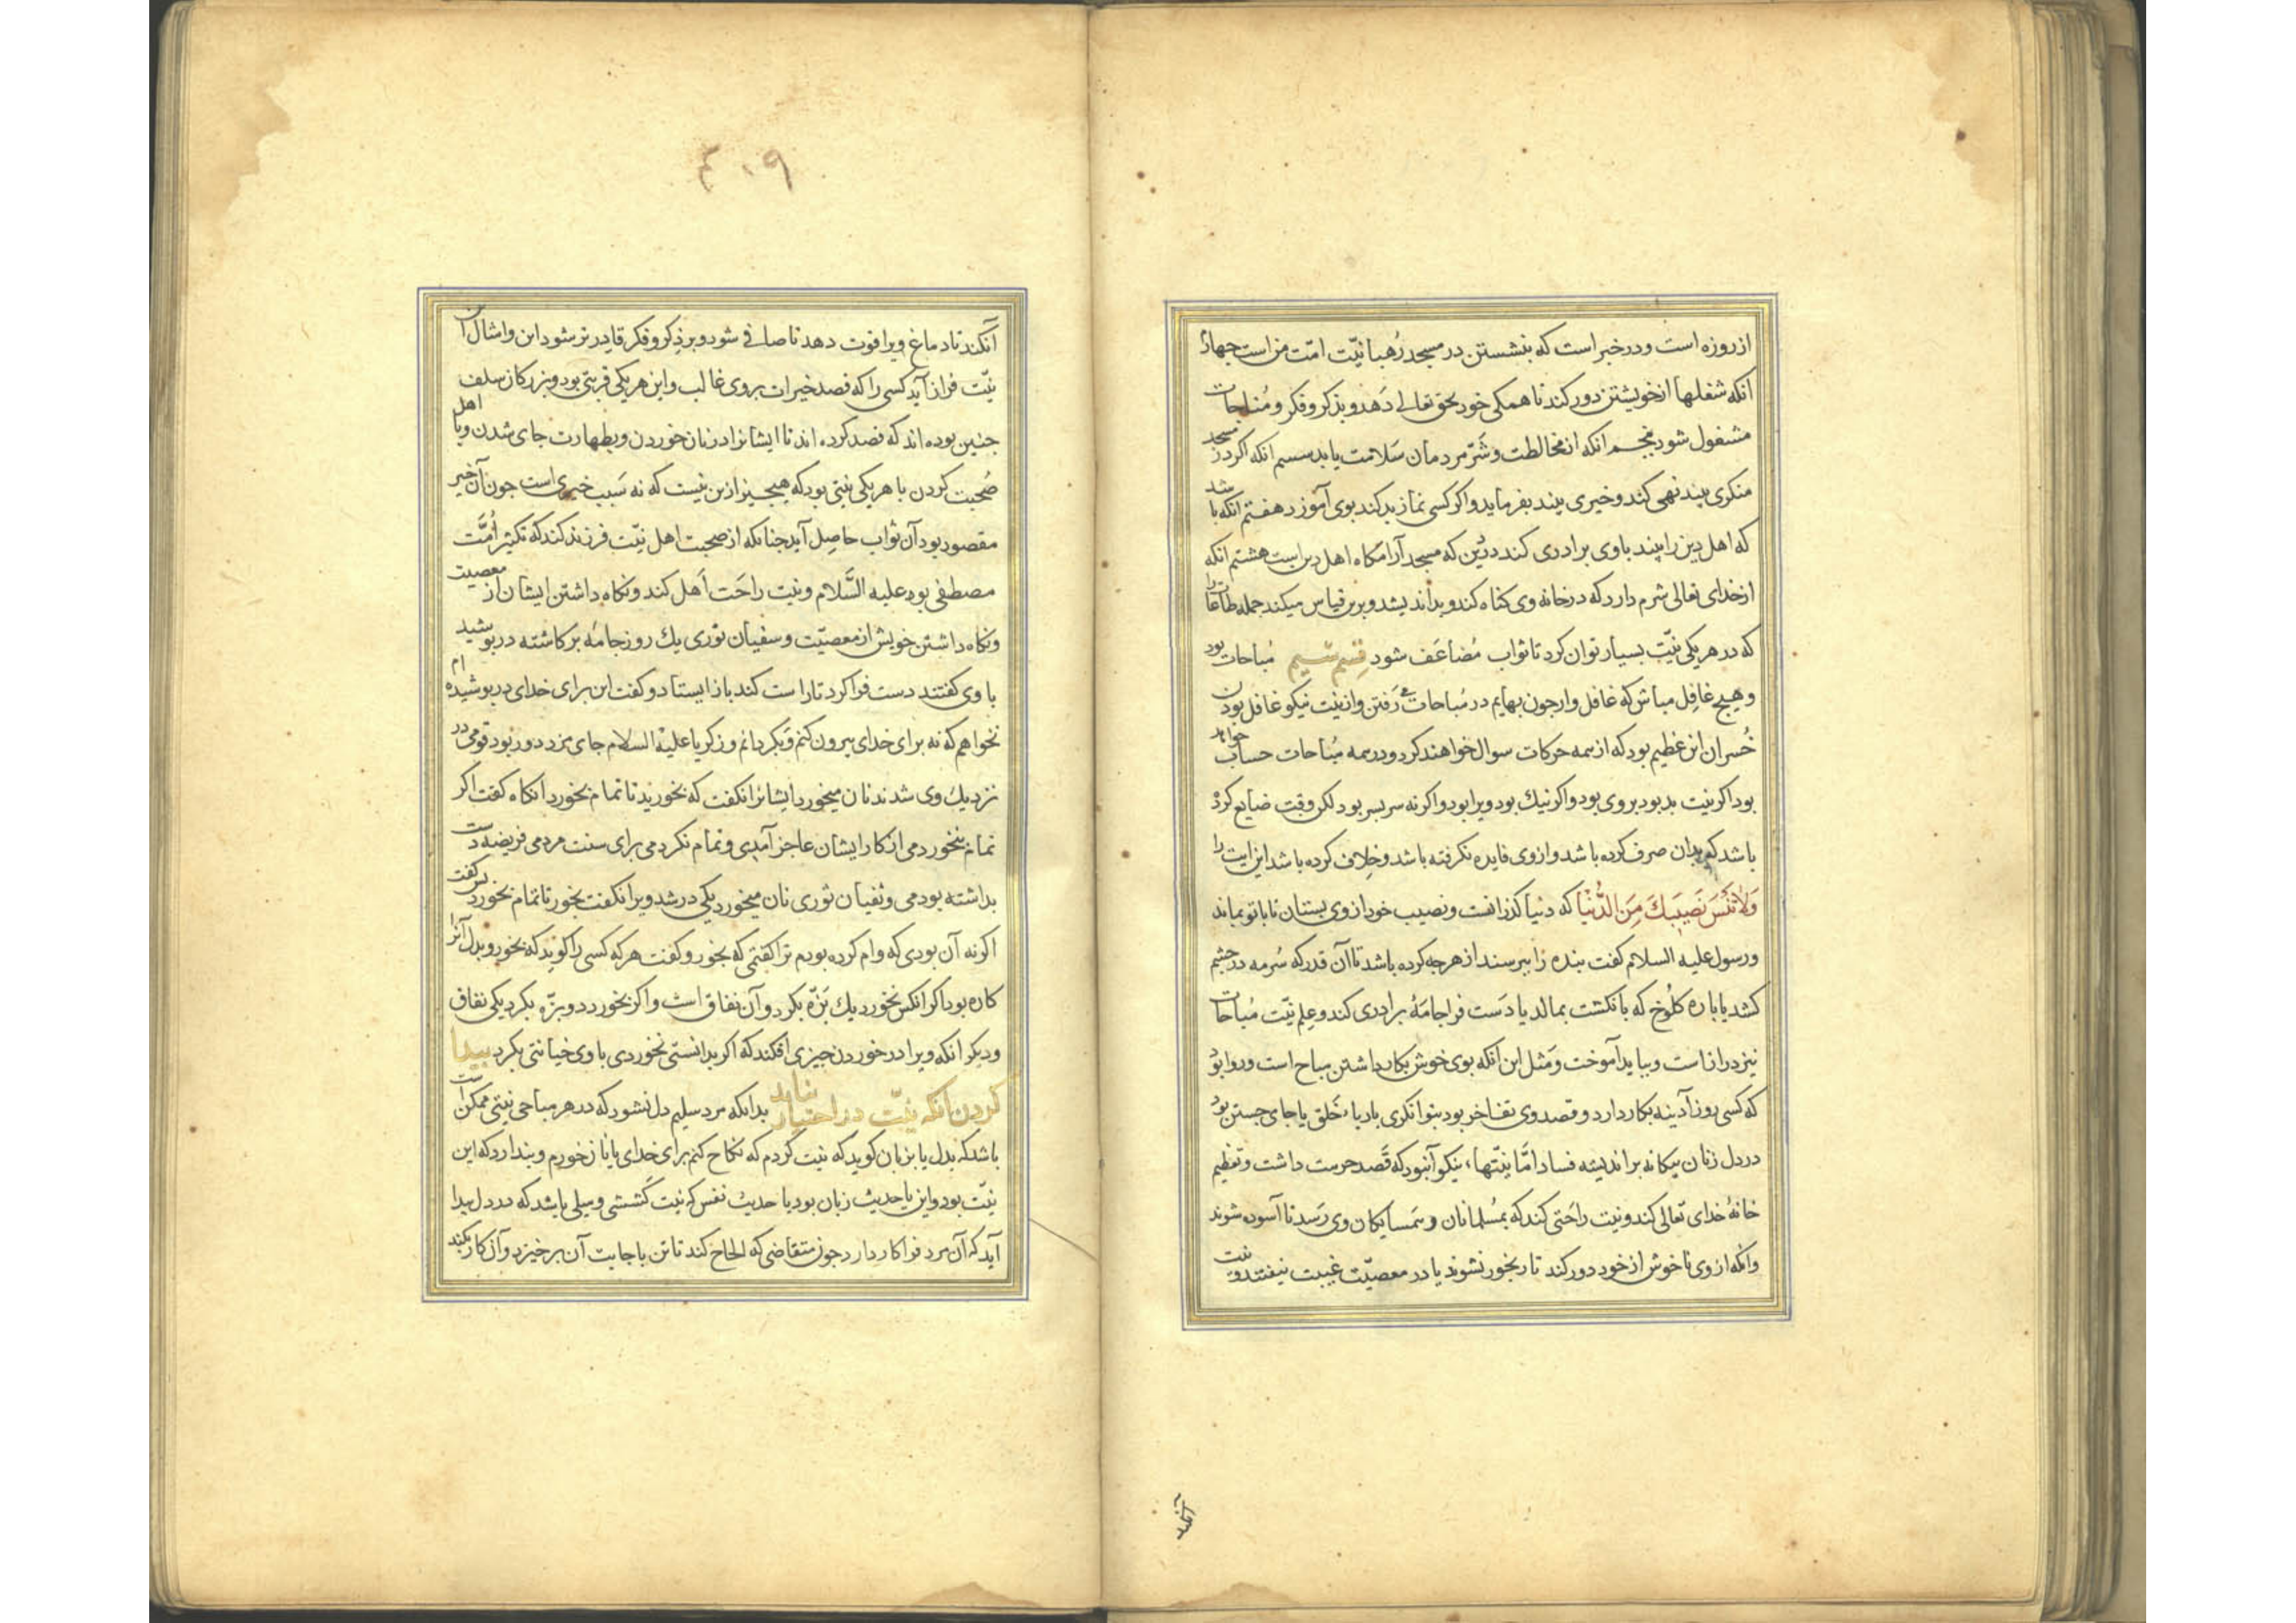 از روزه است و در خبر است که بنشستن در مسجد رُهبانیّت امّت من است چهارم
انکه شغلها از خویشتن دور کند تا همکی خود بحق تعالی دَهد و بذکر و فکر و مُناجات
مشغول شود پنجم انکه از مخالطت و شَرّ مردمان سَلامت یابد سسم انکه اکر در مسجد
منکری بیند نهی کند و خیری بیند بفرماید و اکر کسی نماز بد کند بوی آموزد هفتم انکه باشد
که اهل دین را بیند با وی برادری کند در دین که مسجد آرامکاه اهل دین است هشتم انکه
از خدای تعالی شرم دارد که در خانه وی کناه کند و بد اندیشد و برین قیاس میکند جمله طاعات را
که در هر یکی نیّت بسیار توان کرد تا ثواب مُضاعَف شود قسم سیم مُباحات بود
و هیچ غافِل مباش که غافل وار جون بهایم در مُباحات می رَفتن و از نیّت نیکو غافل بودن
خُسران این عظیم بود که از همه حرکات سوال خواهند کرد و در همه مُباحات حساب خواهد
بود اکر نیت بد بود بر وی بود و اکر نیك بود ویرا بود و اکر نه سر بسر بود لکن وقت ضایع کرده
باشد که بدان صرف کرده باشد و از وی فایده نکرفته باشد و خِلاف کرده باشد این ایت را
وَلَا تَنْسَ نَصِیبَكَ مِنَ الدُّنْیَا که دنیا کذرانست و نصیب خود از وی بستان تا با تو بماند
و رسول علیه السلام کفت بنده را ببرسند از هر جه کرده باشد تا آن قدر که سُرمه در چشم
کشد یا باره کلُوخ که بانکشت بمالد یا دَست فرا جامَهٔ برادری کند و عِلم نیّت مُباحات
نیز دراز است و بباید آموخت و مَثل این انکه بوی خوش بکار داشتن مباح است و روا بود
که کسی روز آدینه بکار دارد و قصد وی تفاخر بود بتوانکری یا ریاء خَلق یا جای جستن بود
در دل زنان بیکانه بر اندیشه فساد امّا نیّتهاء نیکو آن بود که قَصد حرمت داشت و تعظیم
خانهٔ خدای تعالی کند و نیت راحَتی کند که بمُسلمانان و همسایکان وی رَسد تا آسوده شوند
و انکه از وی ناخوش از خود دور کند تا رنجور نشوند یا در معصیّت غیبت نیفتند و نیت
آنکند
٤٠٩
آنکند تا دماغ ویرا قوت دهد تا صافی شود و بر ذِکر و فکر قادرتر شود این و امثال این
نیّت فراز آید کسی را که قصد خیرات بر وی غالب و این هر یکی قربتی بود و بزرکان سلف
جنین بوده اند که قصد کرده اند تا ایشانرا در نان خوردن و بطهارت جای شدن و با اهل
صُحبت کردن با هر یکی نیتی بود که هیچ چیز ازین نیست که نه سَبب خیری است جون آن خیر
مقصود بود آن ثواب حاصِل آید جنانکه از صحبت اهل نیّت فرزند کند که تکثیر اُمَّت
مصطفی بود علیه السَّلام و نیت راحَت اَهل کند و نکاه داشتن ایشان از معصیت
و نکاه داشتن خویش از معصیّت و سفیان ثوری یك روز جامَه بر کاشته در پوشید
با وی کفتند دست فرا کرد تا راست کند باز ایستاد و کفت این برای خدای در پوشیده ام
نخواهم که نه برای خدای بیرون کنم و بکردانم و زکریا علیه السلام جای مزدور بود قومی در
نزدیك وی شدند نان میخورد ایشانرا نکفت که بخورید تا تمام بخورد انکاه کفت اکر
تمام نخوردمی از کار ایشان عاجز آمدی و تمام نکردمی برای سنت مردمی فریضه دست
بداشته بودمی و سفیان ثوری نان میخورد یکی در شد ویرا نکفت بخور تا تمام بخورد بس کفت
اکر نه آن بودی که وام کرده بودم ترا کفتمی که بخور و کفت هر که کسی را کوید که بخور و بدل آنرا
کاره بود اکر انکس نخورد یك بَزَه بکرد و آن نفاق است و اکر بخورد دو بزه بکرد یکی نفاق
و دیکر انکه ویرا در خوردن جیزی افکند که اکر بدانستی نخوردی با وی خیانتی بکرد بیدا
کردن انکه نیّت در اختیار نیاید بدانکه مرد سلیم دل نشود که در هر مباحی نیتی ممکن است
باشد که بدل یا بزبان کوید که نیت کردم که نکاح کنم برای خدای یا نان خورم و بندارد که این
نیّت بود و این یا حدیث زبان بود یا حدیث نفس که نیت کَششی و میلی باشد که در دل بیدا
آید که آن مرد فرا کار دارد جون متقاضی که الحاح کند تا تن باجابت آن برخیزد و آن کار بکند